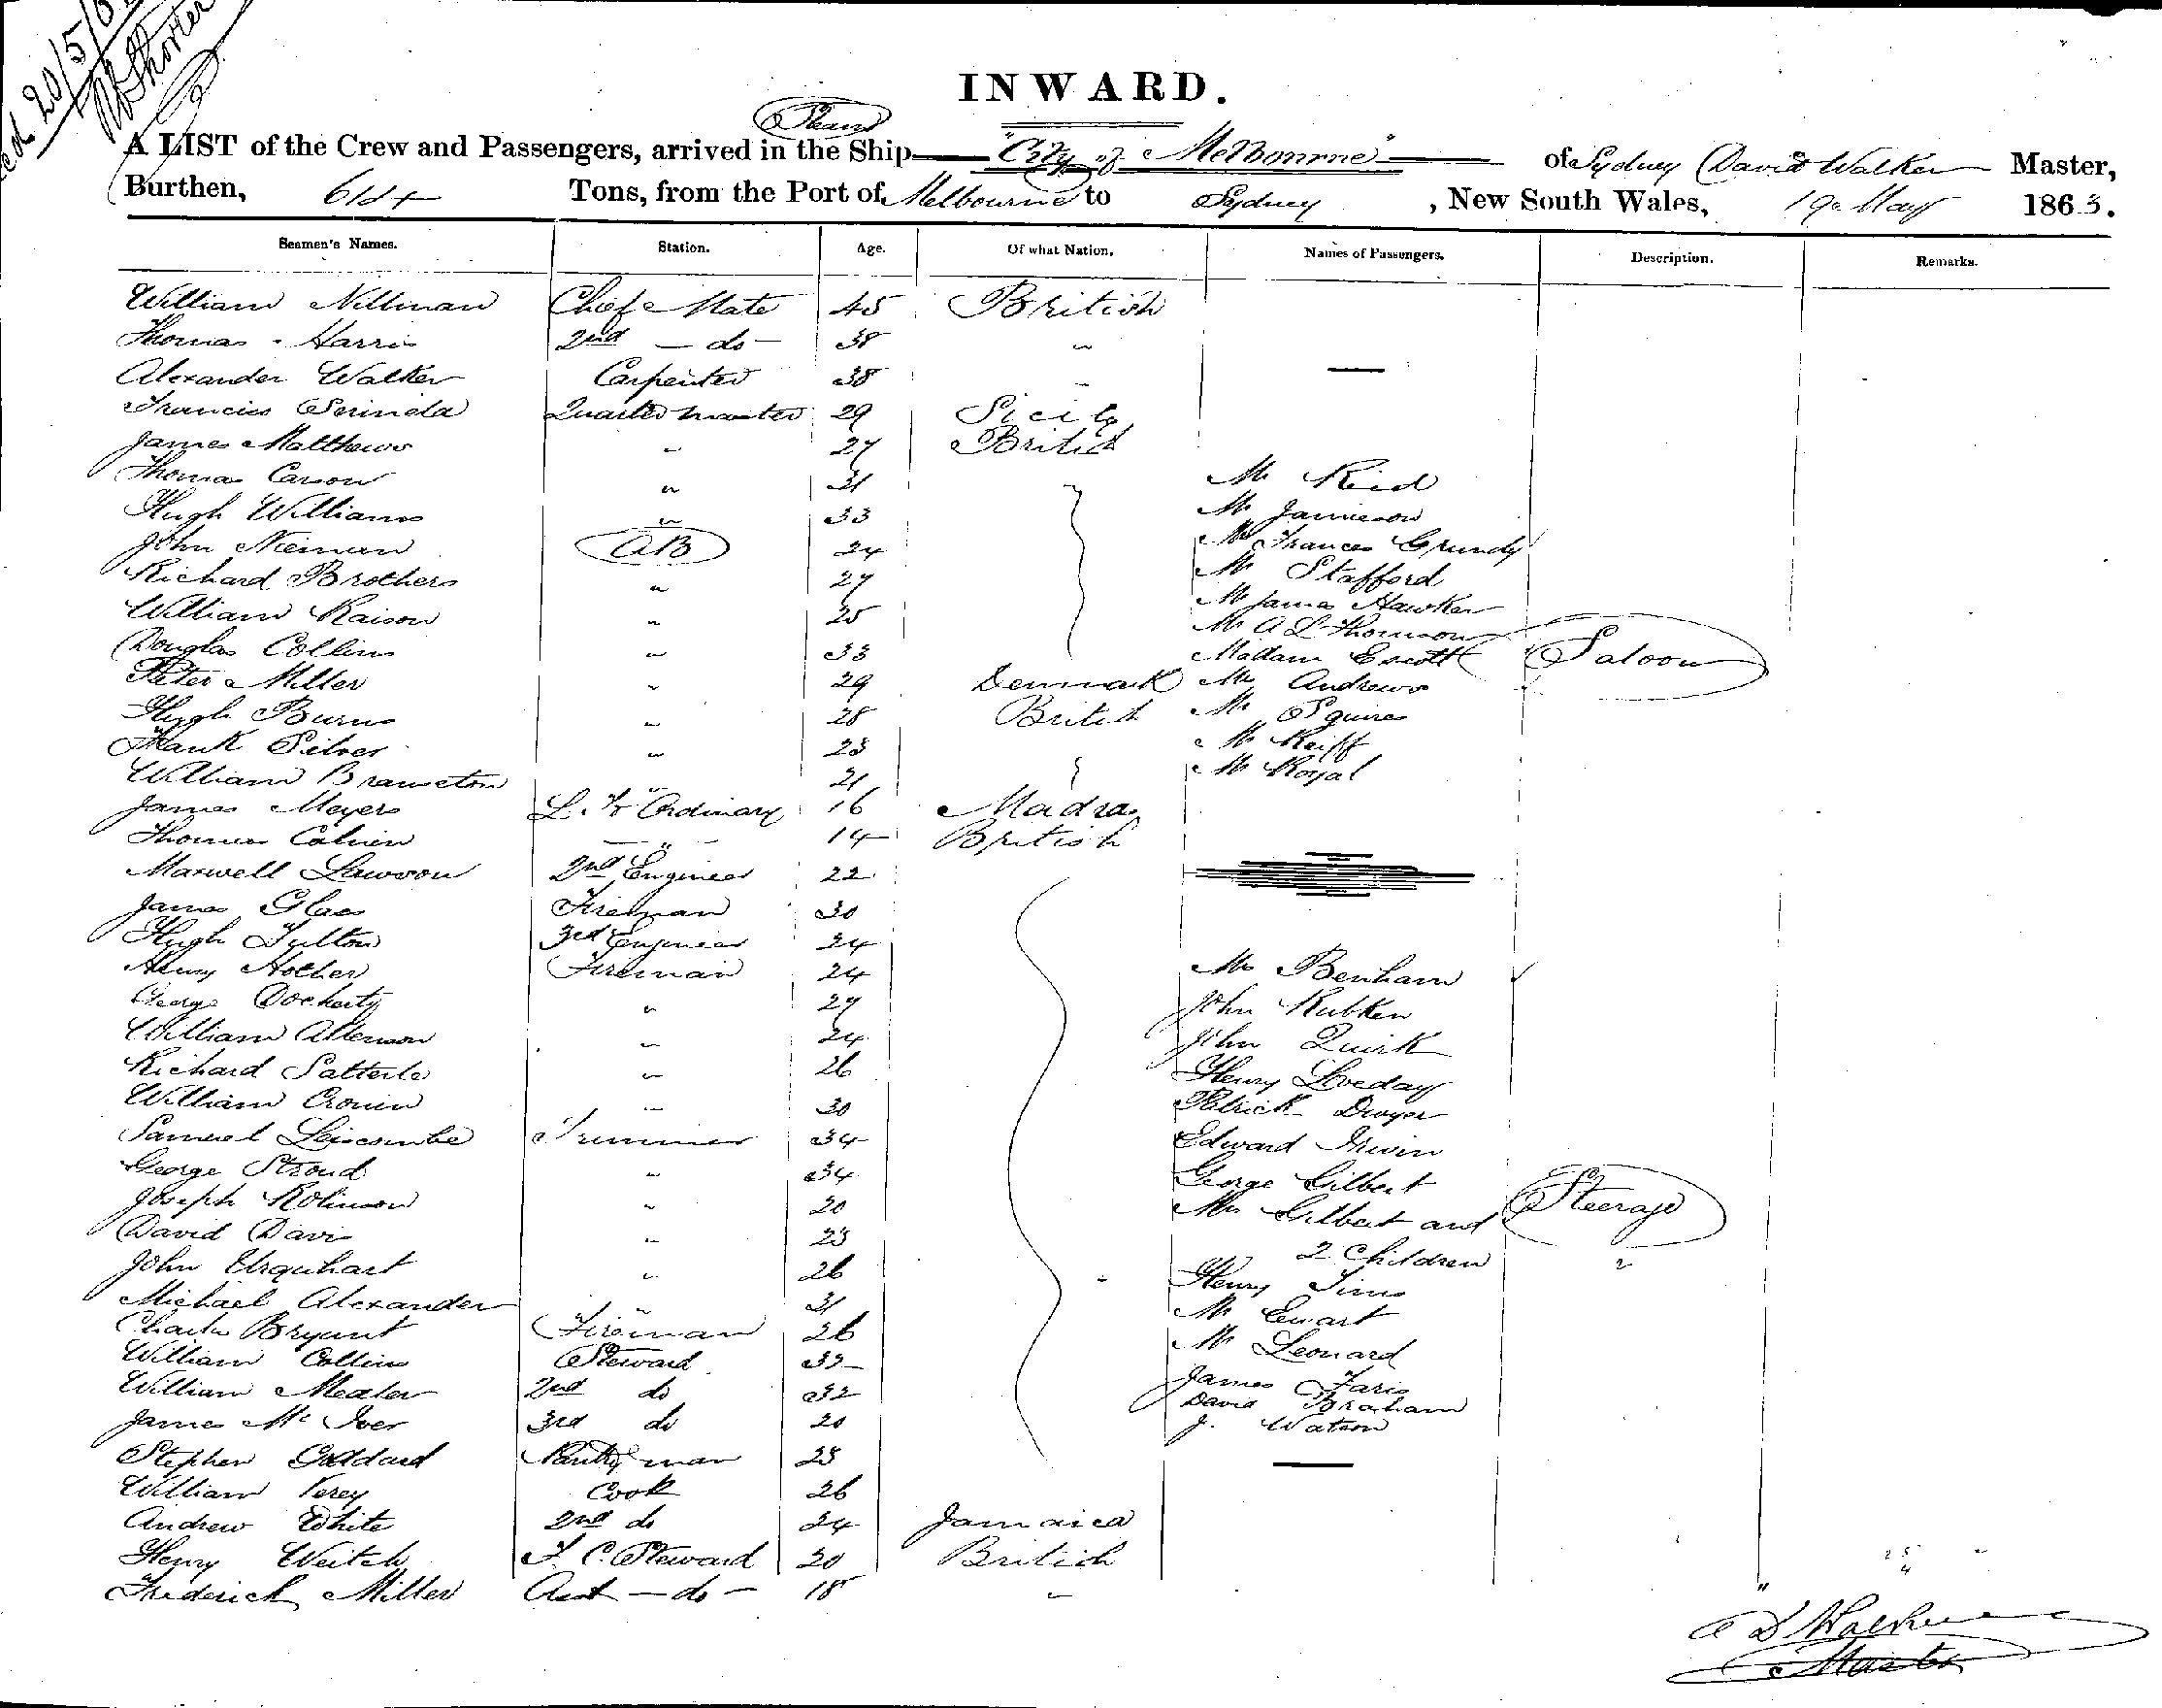 20/5/6
W Shorter
INWARD.
Steam
A LIST of the Crew and Passengers, arrived in the Ship "City of Melbourne" of Sydney David Walker Master,
Burthen, Tons, from the Port of Melbourne to Sydney, New South Wales, 19 May 1863.
Seamen's Names. Station. Age. Of what Nation. Names of Passengers. Description. Remarks.
William Chief Mate 45 British
Thomas Harris 2nd - do - 38 "
Alexander Walker Carpenter 38 "
Francies Quarter master 29 Sicily
James Matthews " 27 British
Thomas Carson " 31 Mr Reid
Hugh Williams " 33 Mr Jamieson
John Nieman AB 24 Mr Frances Grundy
Richard Brothers " 27 Mr Stafford
William Raison " 25 Mr James Hawker
Douglas Collins " 33 Mr A L Thomson
Peter Miller " 29 Denmark Madam Escott Saloon
Hugh Burns " 28 British Mr Andrews
Frank Silver " 23 Mr Squires
William Bramston " 21 Mr Reiff
James Meyers L. Ordinary 16 Madras Mr Royal
Thomas Calvin " 14 British
Maxwell Lawson 2nd Engineer 22
James Glass Fireman 30
Hugh Fulton 3rd Engineer 24
Henry Hother Fireman 24 Benham
George Docherty " 27 John Rubken
William Atterson " 24 John Quirk
Richard Satterle " 26 Henry Loveday
William Cronin " 30 Patrick Dwyer
Samuel Leiscombe Trimmer 34 Edward Irwin
George Stroud " 34 George Gilbert
Joseph Robinson " 20 Mrs Gilbert and Steerage
David Davis " 23 2 Children "
John Urquhart " 26 Henry Sims
Michael Alexander " 31 Mr Ewart
Charles Bryant Fireman 26 Mr Leonard
William Collins Steward 32 James Faris
William Mealer 2nd do 32 David Braham
James McIver 3rd do 20 J. Watson
Stephen Goddard Pantry man 23
William Verey Cook 26
Andrew White 2nd do 24 Jamaica
Henry Weitch F. C. Steward 20 British
Frederick Miller Asst - do - 18 "
D Walker
Master